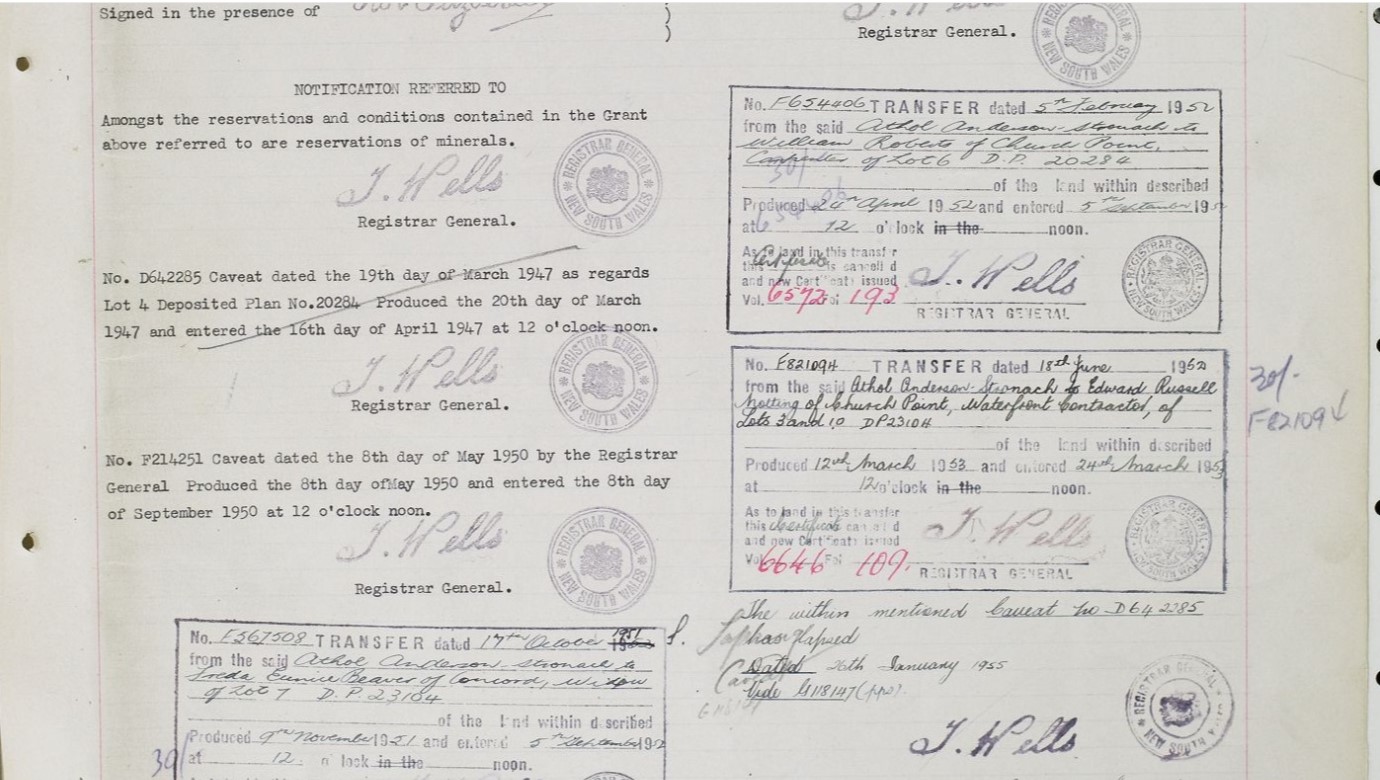 Signed in the presence of
NOTIFICATION REFERRED TO
Amongst the reservations and conditions contained in the Grant
above referred to are reservations of minerals.
J. Wells
Registrar General.
REGISTRAR GENERAL NEW SOUTH WALES
No. D642285 Caveat dated the 19th day of March 1947 as regards
Lot 4 Deposited Plan No.20284 Produced the 20th day of March
1947 and entered the 16th day of April 1947 at 12 o'clock noon.
J. Wells
Registrar General.
REGISTRAR GENERAL NEW SOUTH WALES
No. F214251 Caveat dated the 8th day of May 1950 by the Registrar
General Produced the 8th day ofMay 1950 and entered the 8th day
of September 1950 at 12 o'clock noon.
J. Wells
Registrar General.
REGISTRAR GENERAL NEW SOUTH WALES
No. F567508 TRANSFER dated 17th October 1951
from the said Athol Anderson-Stronach to
Freda Eunice Beaver of Concord, Widow
of Lot 7 D.P. 23104
of the land within described
Produced 9th November 1951 and entered 5th September 1952
30/
at 12 o'clock in the noon.
J. Wells
Registrar General.
REGISTRAR GENERAL NEW SOUTH WALES
No. F654406 TRANSFER dated 5th February 1952
from the said Athol Anderson-Stronach to
William Roberts of Church Point,
Carpenter of Lot 6 D.P. 20284
30/
of the land within described
Produced 24th April 1952 and entered 5th September 195
at 12 o'clock in the noon.
As to land in this transfer
this Certificate is cancelled
and new Certificate issued
Vol. 6572 Fol 193
J. Wells
REGISTRAR GENERAL
REGISTRAR GENERAL NEW SOUTH WALES
No. F82109 TRANSFER dated 18th June 1952
from the said Athol Anderson-Stronach to Edward Russell
of Church Point, Waterfront Contractor, of
Lots 3 and 10 DP23104
of the land within described
Produced 12th March 1953 and entered 24th March 1953
at 12 o'clock in the noon.
As to land in this transfer
this Certificate cancelled
and new Certificate issued
Vol. 6646 Fol 109.
J. Wells
REGISTRAR GENERAL
REGISTRAR GENERAL NEW SOUTH WALES
30/-
F82109
The within mentioned Caveat No D642285
has lapsed
Dated 26th January 1955
Vide G118147
J. Wells